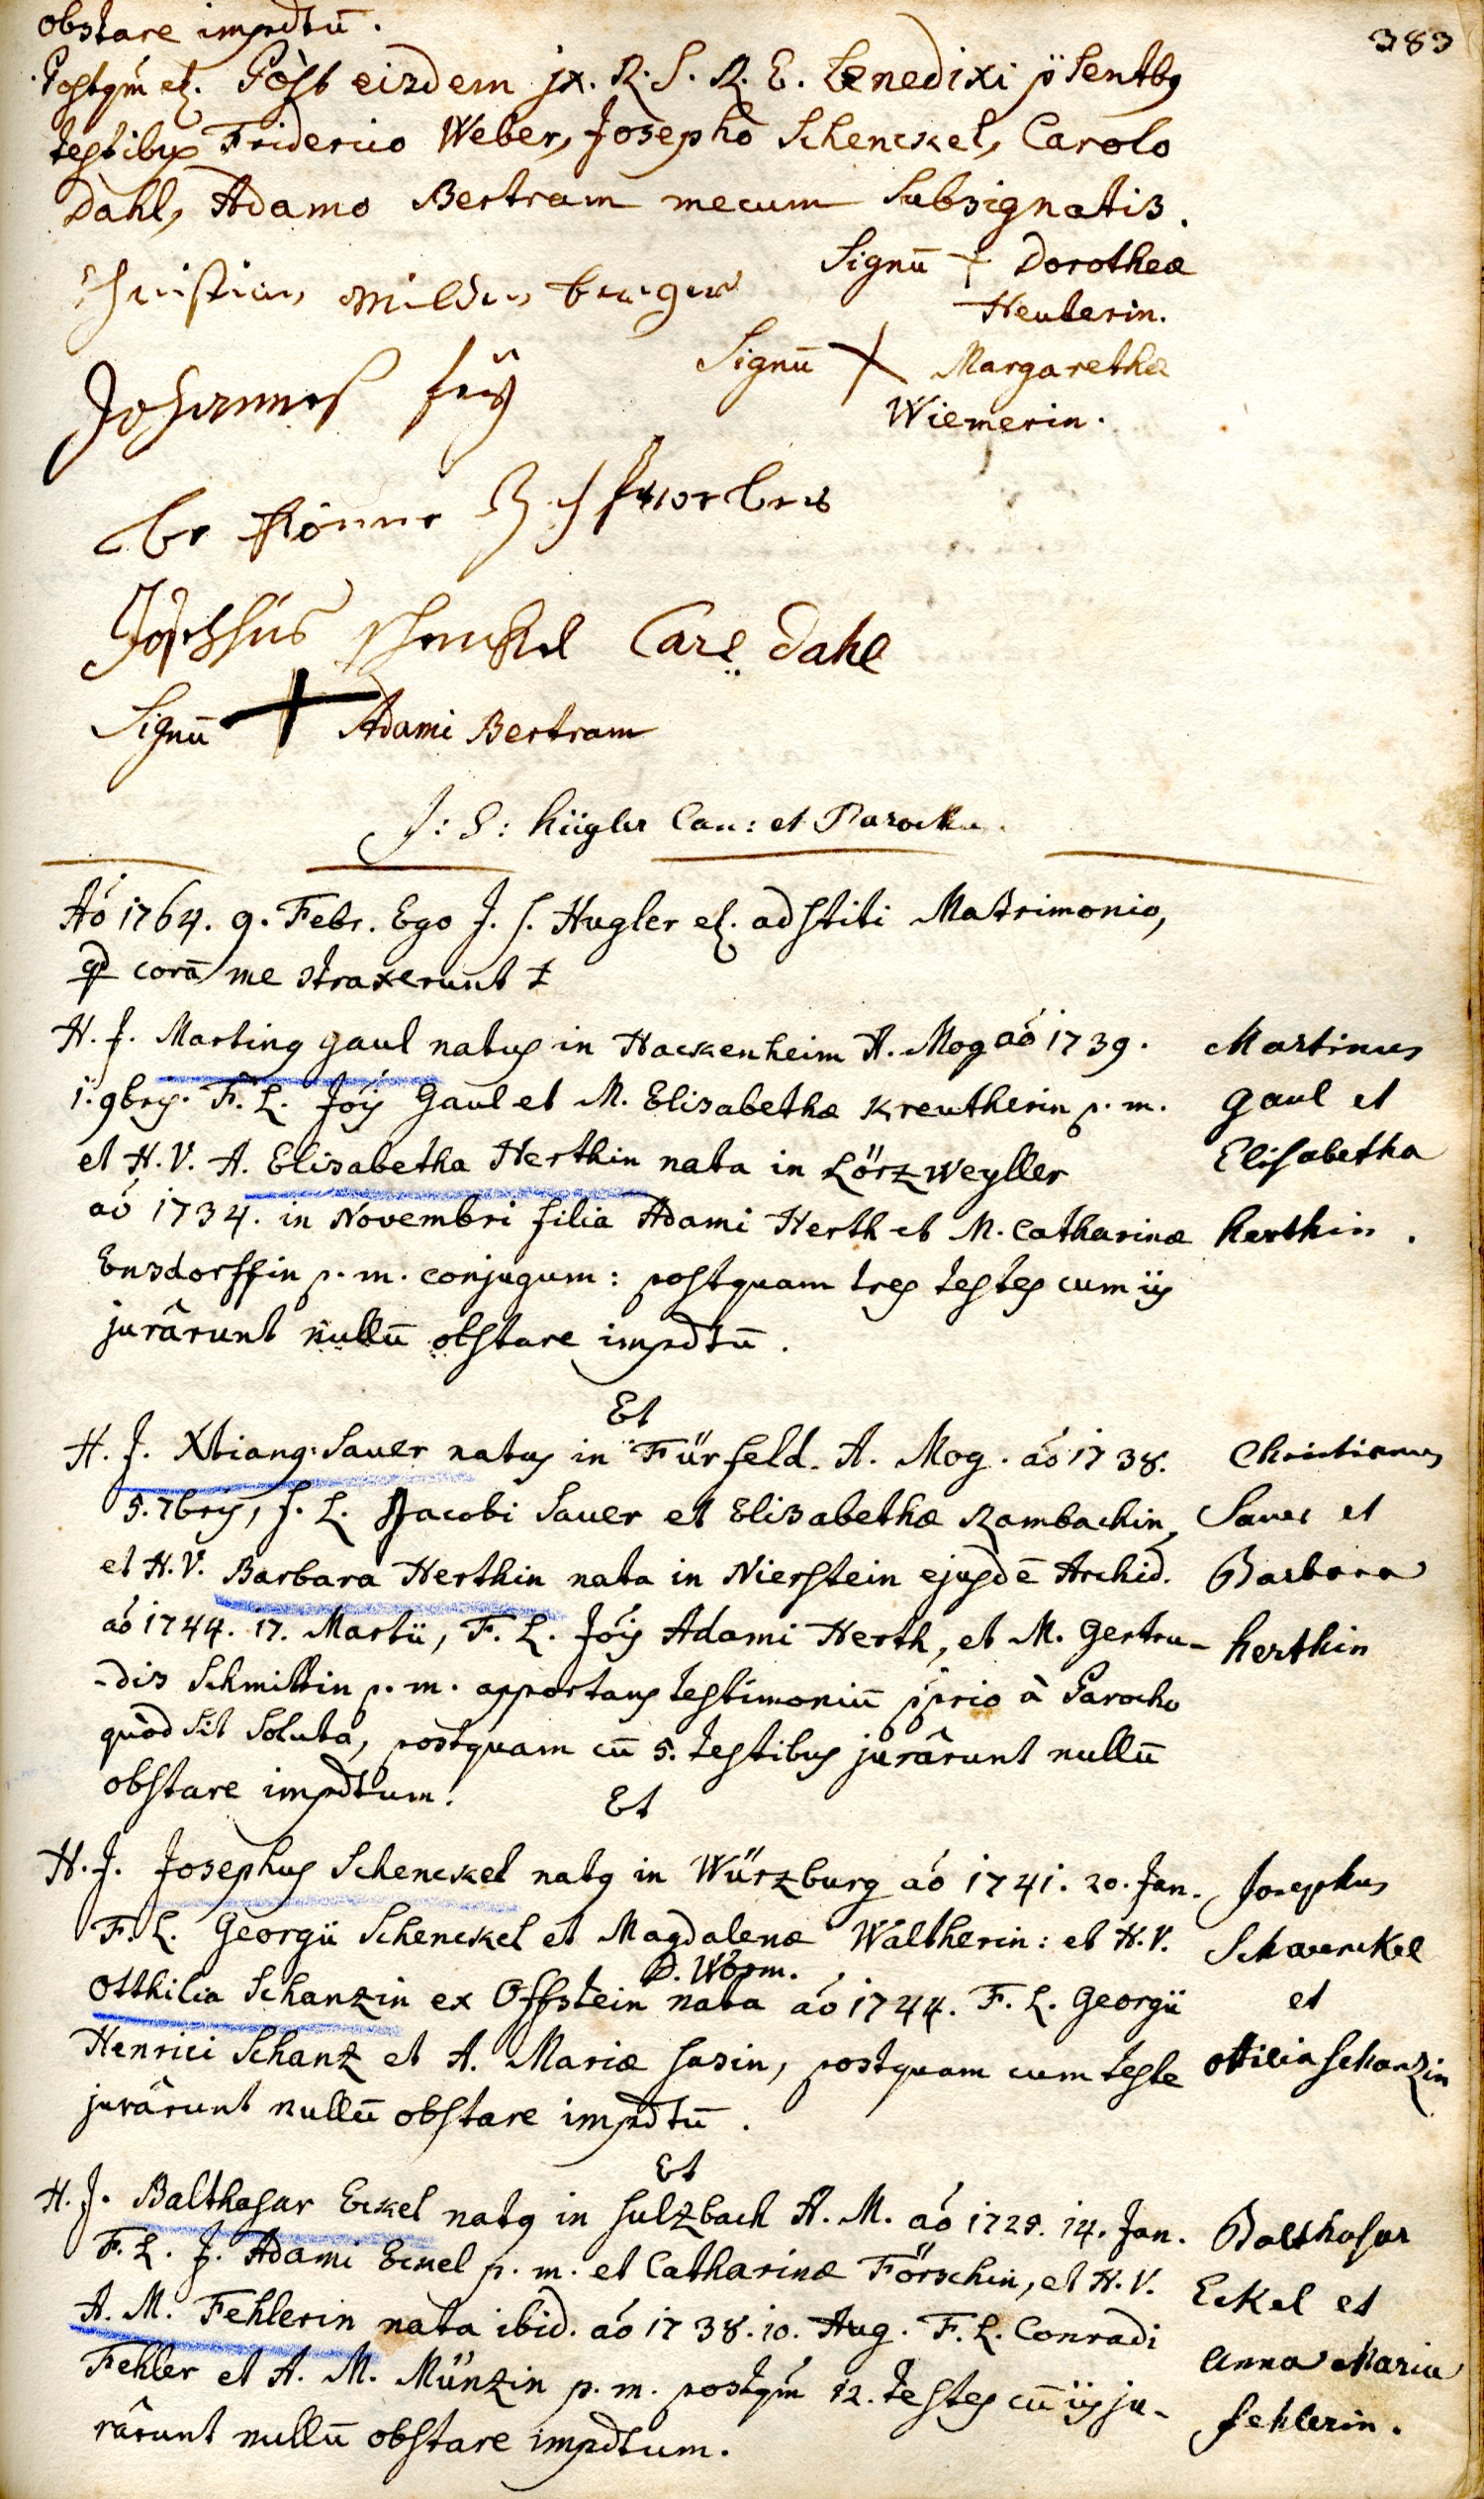 obstare impdtū.
383
Postqm̄ et. Pòst eisdem jx. R. S. R. E. benedixi p̄sentbg
testibus Friderico Weber, Josepho Schenckel, Carolo
Dahl, Adamo Bertram mecum Subsignatis.
Signū + Dorotheæ
Heulerin.
Christian
Johannes
Signū + Margarethæ
Wiemerin.
Josephus Schenckel Carl Dahl
Signū + Adami Bertram
J: S: Hügler Can: et Parochu.
Aó 1764. 9. Febr. Ego J. S. Hugler et. adstiti Matrimonio,
qd corā me straxerunt
H. J. Marting Gaul natus in Hackenheim A. Mog aó 1739.
1. 9bris. F. L. Jóis Gaul et M. Elisabethæ Kreutherin p. m.
et H. V. A. Elisabetha Herthin nata in Lörzweyller
aó 1734. in Novembri filia Adami Herth et M. Catharinæ
Ensdorffin p. m. conjugum: postquam tres testes cum iis
jurârunt nullū obstare impdtū.
Martinus
Gaul et
Elisabetha
herthin.
Et
H. J. Xtiang: Sauer natus in Fürfeld. A. Mog. aó 1738.
5. 7bris, f. L. Jacobi Sauer et Elisabethæ Rambachin,
et H. V. Barbara Herthin nata in Nierstein ejusdē Archid.
aó 1744. 17. Martii, F. L. Jóis Adami Herth, et M. Gertru-
-dis Schmittin p. m. apportans testimoniū p̄prio à Parocho
quòd sit Soluta, postquam cū 5. testibus jurârunt nullū
obstare impdtum.
Christianus
Sauer et
Barbara
herthin
Et
H. J. Josephus Schenckel natg in Würzburg aó 1741. 20. Jan.
F. L. Georgii Schenckel et Magdalenæ Waltherin: et H. V.
D. Worm.
Otthilia Schanzin ex Offstein nata aó 1744. F. L. Georgii
Henrici Schanz et A. Mariæ Sasin, postquam cum teste
jurârunt nullū obstare impdtū.
Josephus
Schaenckel
et
ottilia Schanzin
Et
H. J. Balthasar Eckel natg in Sulzbach A. M. aó 1729. 14. Jan.
F. L. J. Adami Eckel p. m. et Catharinæ Förschin, et H. V.
A. M. Fehlerin nata ibid. aó 1738. 10. Aug. F. L. Conradi
Fehler et A. M. Münzin p. m. postqm̄ 12. testes cū iis ju-
rârunt nullū obstare impdtum.
Balthasar
Eckel et
Anna Maria
fehlerin.